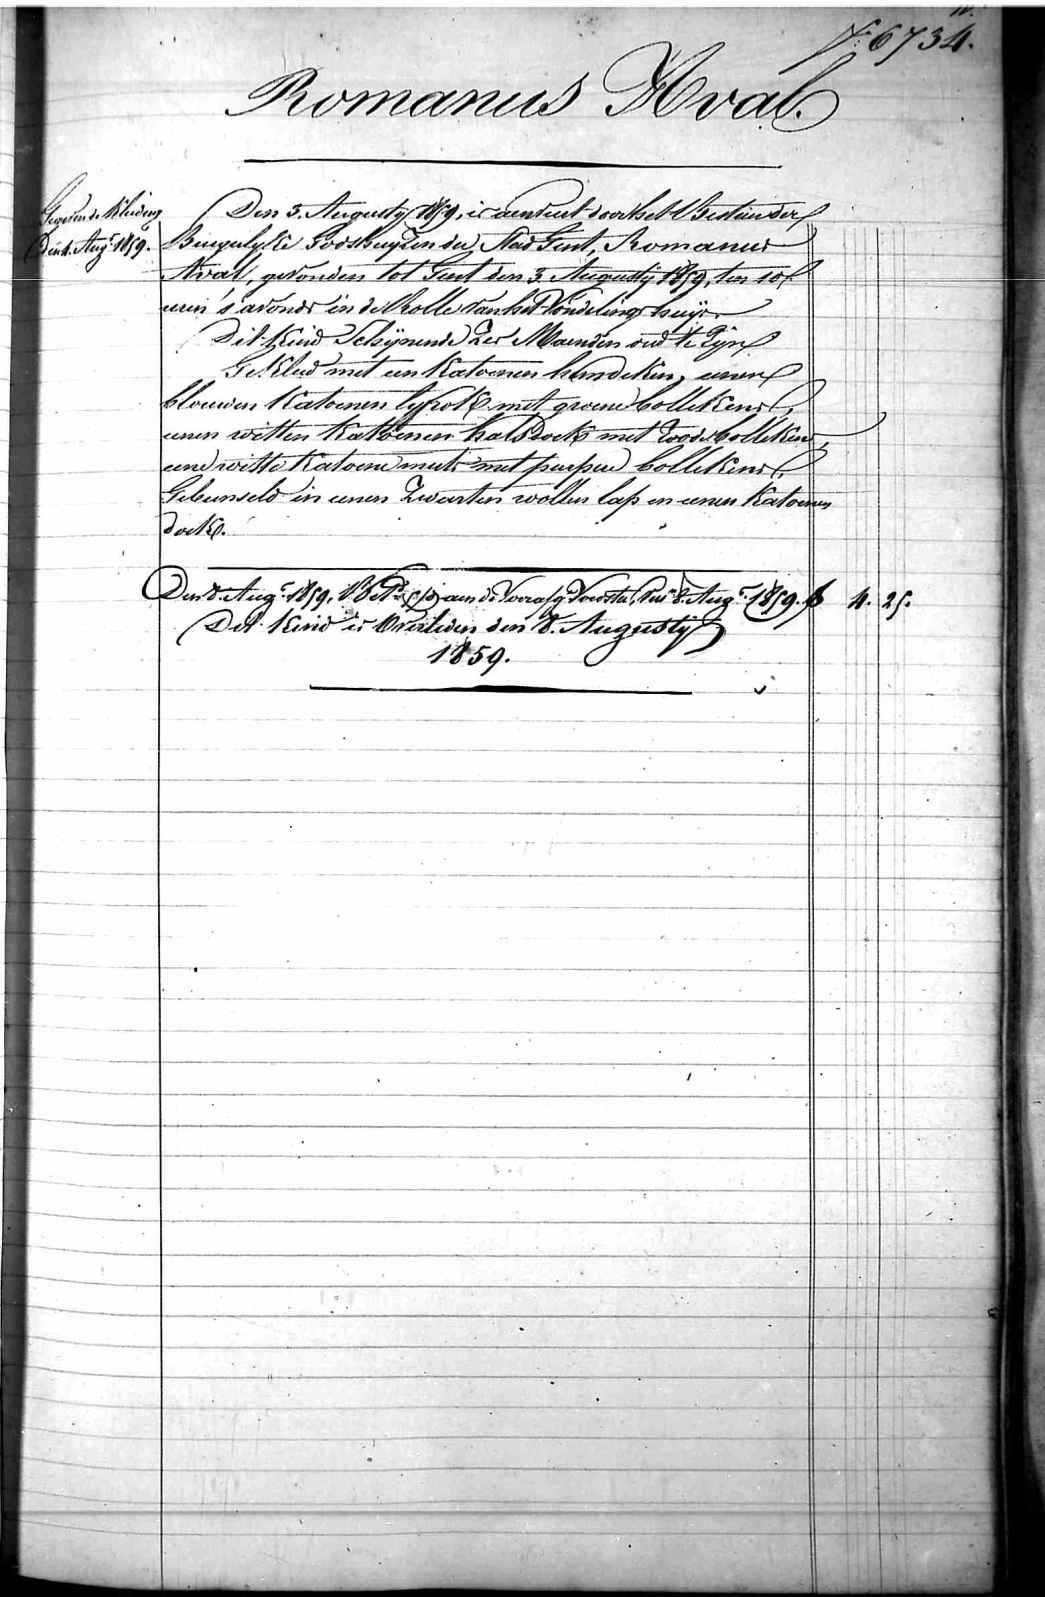 N.º 6734.
Romanus Hval.
Gegevende Kleiding
Den 4. Augt 1859.
Den 3. Augusty 1859, is aenveert door het Bestuur der
Burgerlyke Godshuyzen der Stad Gent, Romanus
Hval, gevonden tot Gent den 3. Augusty 1859, ten 10
uren 's avonds in de Rolle van het Vondelings huys.
Dit Kind Schynende Zes Maenden oud te Zyn
Gekleed met een Katoenen hemdeken, eenen
blauwen Katoenen lyfrok met groene bollekens,
eenen witten Katoenen halsdoek met roode bollekens,
eene witte Katoene muts met purpere bollekens,
Gebunseld in eenen Zwarten wollen lap en eenen Katoenen
doek.
Den 8. Augt 1859. aen de 8. Augt 1859. f 4. 25.
Dit Kind is Overleden den 8. Augusty
1859.